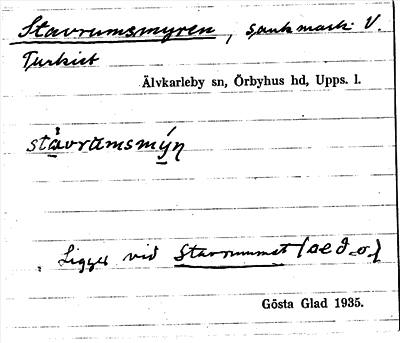 Stavrumsmyren, sank mark V.
Turkiet
Älvkarleby sn, Örbyhus hd, Upps. l.
stávrumsmýn
Ligger vid Stavrummet (se d.o.)
Gösta Glad 1935.